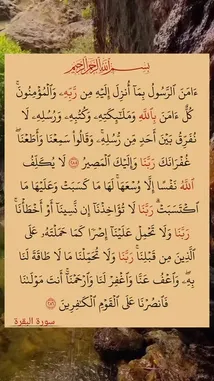 بِسْمِ اللَّهِ الرَّحْمَٰنِ الرَّحِيمِ
ءَامَنَ ٱلرَّسُولُ بِمَآ أُنزِلَ إِلَيْهِ مِن رَّبِّهِۦ وَٱلْمُؤْمِنُونَۚ
كُلٌّ ءَامَنَ بِٱللَّهِ وَمَلَـٰٓئِكَتِهِۦ وَكُتُبِهِۦ وَرُسُلِهِۦ لَا
نُفَرِّقُ بَيْنَ أَحَدٍ مِّن رُّسُلِهِۦۚ وَقَالُوا۟ سَمِعْنَا وَأَطَعْنَاۖ
غُفْرَانَكَ رَبَّنَا وَإِلَيْكَ ٱلْمَصِيرُ ﴿٢٨٥﴾ لَا يُكَلِّفُ
ٱللَّهُ نَفْسًا إِلَّا وُسْعَهَاۚ لَهَا مَا كَسَبَتْ وَعَلَيْهَا مَا
ٱكْتَسَبَتْۗ رَبَّنَا لَا تُؤَاخِذْنَآ إِن نَّسِينَآ أَوْ أَخْطَأْنَاۚ
رَبَّنَا وَلَا تَحْمِلْ عَلَيْنَآ إِصْرًا كَمَا حَمَلْتَهُۥ عَلَى
ٱلَّذِينَ مِن قَبْلِنَاۚ رَبَّنَا وَلَا تُحَمِّلْنَا مَا لَا طَاقَةَ لَنَا
بِهِۦۖ وَٱعْفُ عَنَّا وَٱغْفِرْ لَنَا وَٱرْحَمْنَآۚ أَنتَ مَوْلَىٰنَا
فَٱنصُرْنَا عَلَى ٱلْقَوْمِ ٱلْكَـٰفِرِينَ ﴿٢٨٦﴾
سورة البقرة